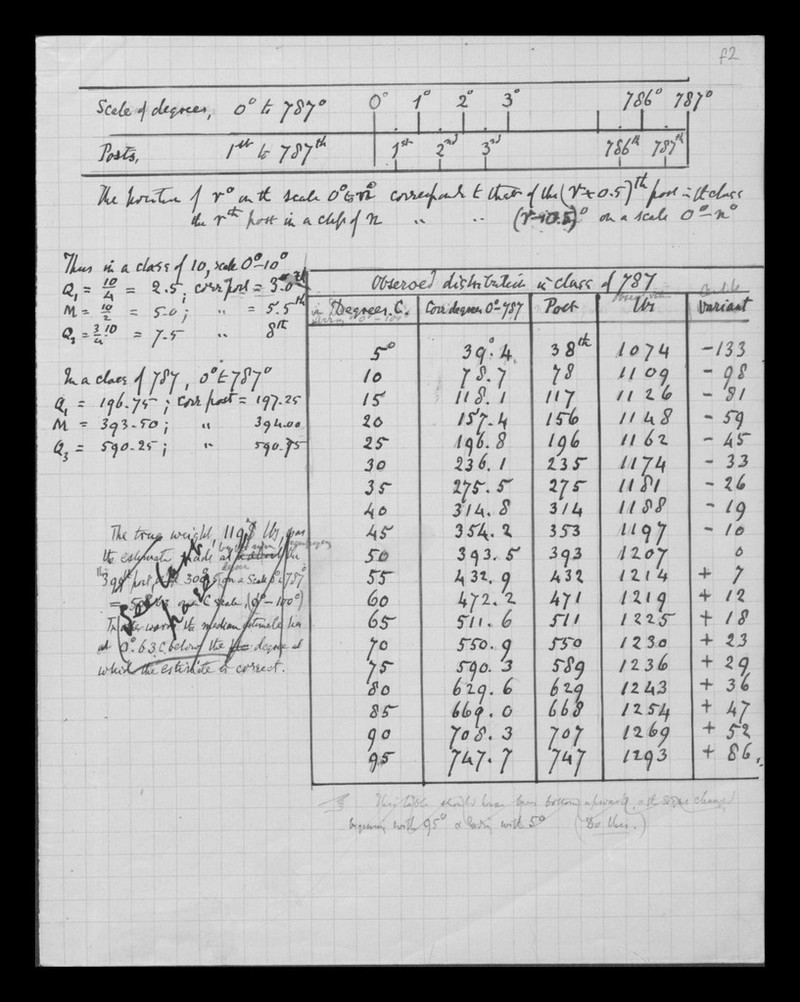 f2
Scale of degrees, 0° to 787° 0° 1° 2° 3° 786° 787°
Posts, 1st to 787th 1st 2nd 3rd 786th 787th
The position of r° on the scale 0° to n° corresponds to that of the (r+0.5)th post in the class
the rth post in a class of n " " (r-0.5)° on a scale 0°-n°
Thus in a class of 10, scale 0°-10°
Q1 = 10/4 = 2.5; corr post = 3.0th
M = 10/2 = 5.0; " = 5.5th
Q3 = 3/4.10 = 7.5 " 8th
In a class of 787, 0° to 787°
Q1 = 196.75; corr post = 197.25
M = 393.50; " 394.00
Q3 = 590.25; " 590.75
The true weight, 119 lbs, was
the estimate made at the
post, on a scale 0°-787°
= C scale, (0°-100°)
In other words the median estimate lies
at 0°.63 C. below the degree at
which the estimate is correct.
See
Observed distribution in class of 787
Degrees C. Corr degrees 0°-787 Post lbs Variant
5° 39°.4 38th 1074 -133
10 78.7 78 1109 -98
15 118.1 117 1126 -81
20 157.4 156 1148 -59
25 196.8 196 1162 -45
30 236.1 235 1174 -33
35 275.5 275 1181 -26
40 314.8 314 1188 -19
45 354.2 353 1197 -10
50 393.5 393 1207 0
55 432.9 432 1214 + 7
60 472.2 471 1219 + 12
65 511.6 511 1225 + 18
70 550.9 550 1230 + 23
75 590.3 589 1236 + 29
80 629.6 629 1243 + 36
85 669.0 668 1254 + 47
90 708.3 707 1269 + 52
95 747.7 747 1293 + 86
This table should have been bottom upwards, & the signs changed
beginning with 95° & ending with 5° (Do this.)